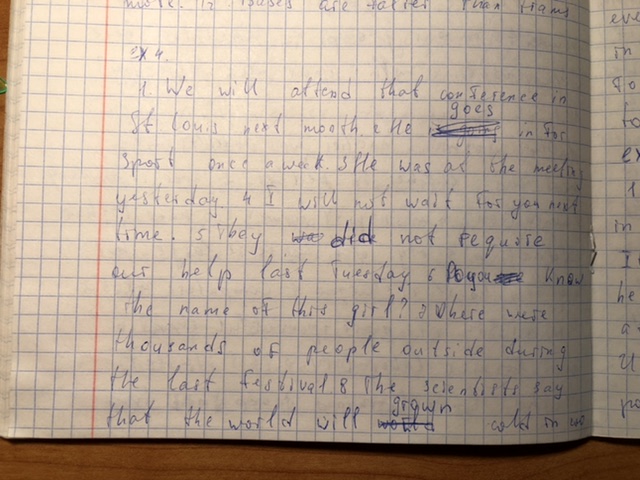 more. 12 Buses are faster than trams
ex 4.
1. We will attend that conference in
goes
St Louis next month. 2 He in for
sport once a week. 3 He was at the meeting
yesterday 4 I will not wait for you next
time. 5 They did not require
our help last Tuesday 6 Do you know
the name of this girl? 7 There were
thousands of people outside during
the last festival 8 The scientists say
grown
that the world will cold in
eve
in
to
to
ex
1
in
I
he
a
U
po